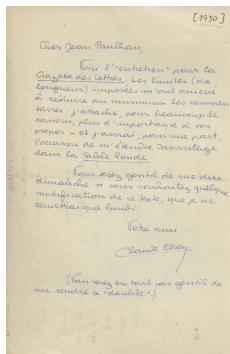 [1950]
Cher Jean Paulhan,
Voici l'"entretien" pour la
Gazette des Lettres. Les limites (de
longueur) imposées m'ont amené
à réduire au minimum les commen-
taires : j'attache, pour beaucoup de
raisons, plus d'importance à vos
propos – et j'aurai, pour ma part,
l'occasion de m'étendre davantage
dans la Table Ronde.
Vous serez gentil de me dire
dimanche si vous souhaitez quelque
modification de ce texte, que je ne
remettrai que lundi.
Votre ami
Claude Elsen
(Vous serez en tout cas gentil de
me rendre ce "double".)